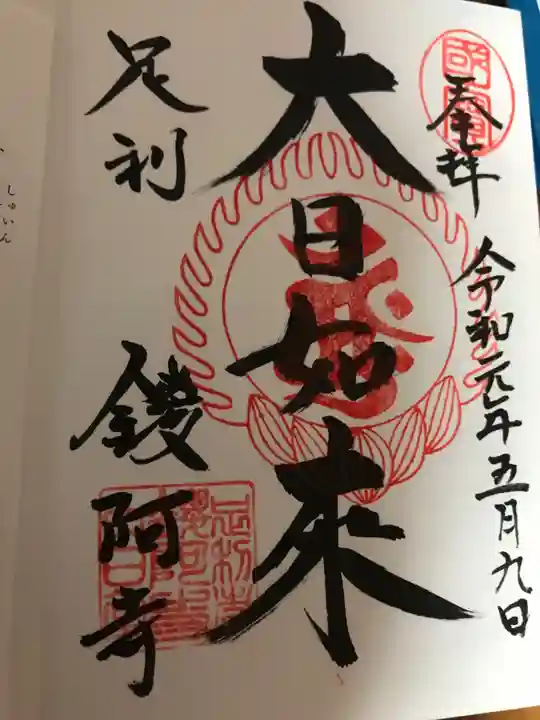 奉拝
令和元年五月九日
大日如来
足利
鑁阿寺
國寳
しゅいん